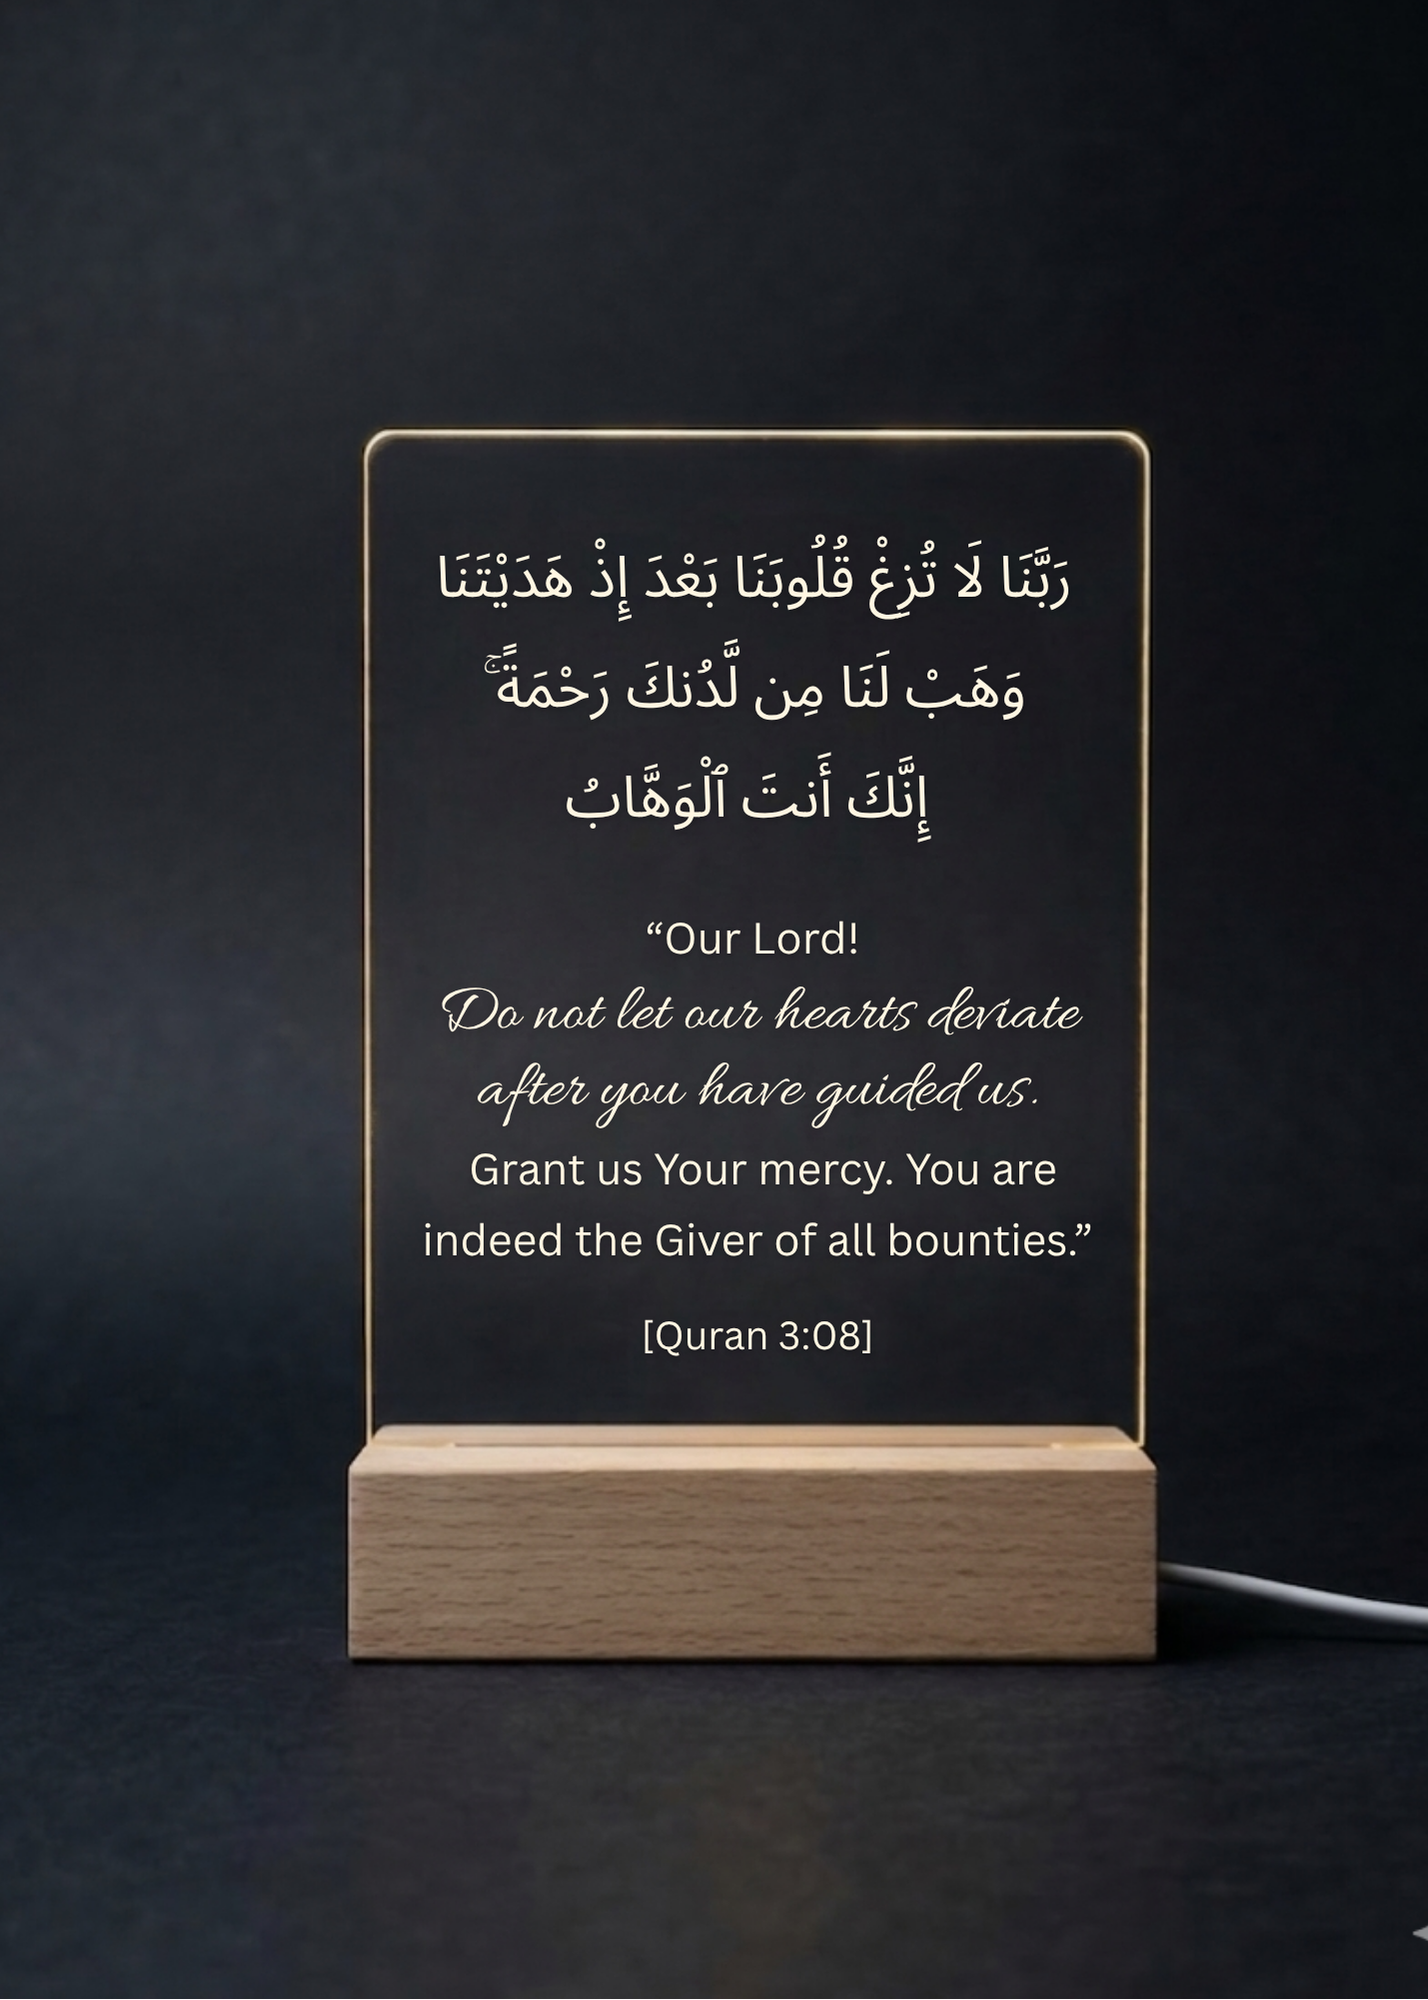 رَبَّنَا لَا تُزِغْ قُلُوبَنَا بَعْدَ إِذْ هَدَيْتَنَا
وَهَبْ لَنَا مِن لَّدُنكَ رَحْمَةً ۚ
إِنَّكَ أَنتَ ٱلْوَهَّابُ
“Our Lord!
Do not let our hearts deviate
after you have guided us.
Grant us Your mercy. You are
indeed the Giver of all bounties.”
[Quran 3:08]